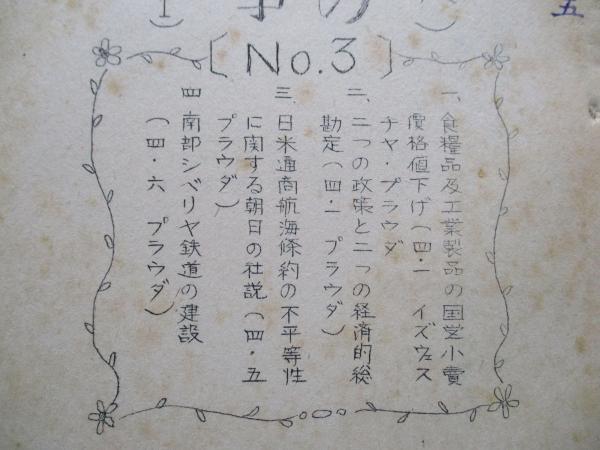 [No.3]
五
一、食糧品及工業製品の国営小賣
價格値下げ(四・一 イズヴェス
チヤ・プラウダ
二、二つの政策と二つの経済的総
勘定(四・一 プラウダ)
三 日米通商航海條約の不平等性
に関する朝日の社説(四・五
プラウダ)
四 南部シベリヤ鉄道の建設
(四・六 プラウダ)